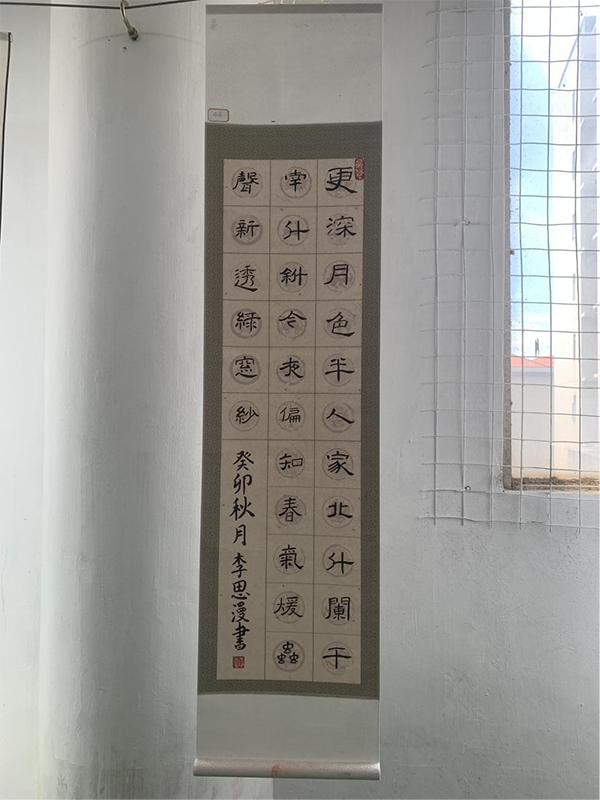 更深月色半人家北斗闌干
南斗斜今夜偏知春氣煖蟲
聲新透綠窻紗
癸卯秋月李思漫書